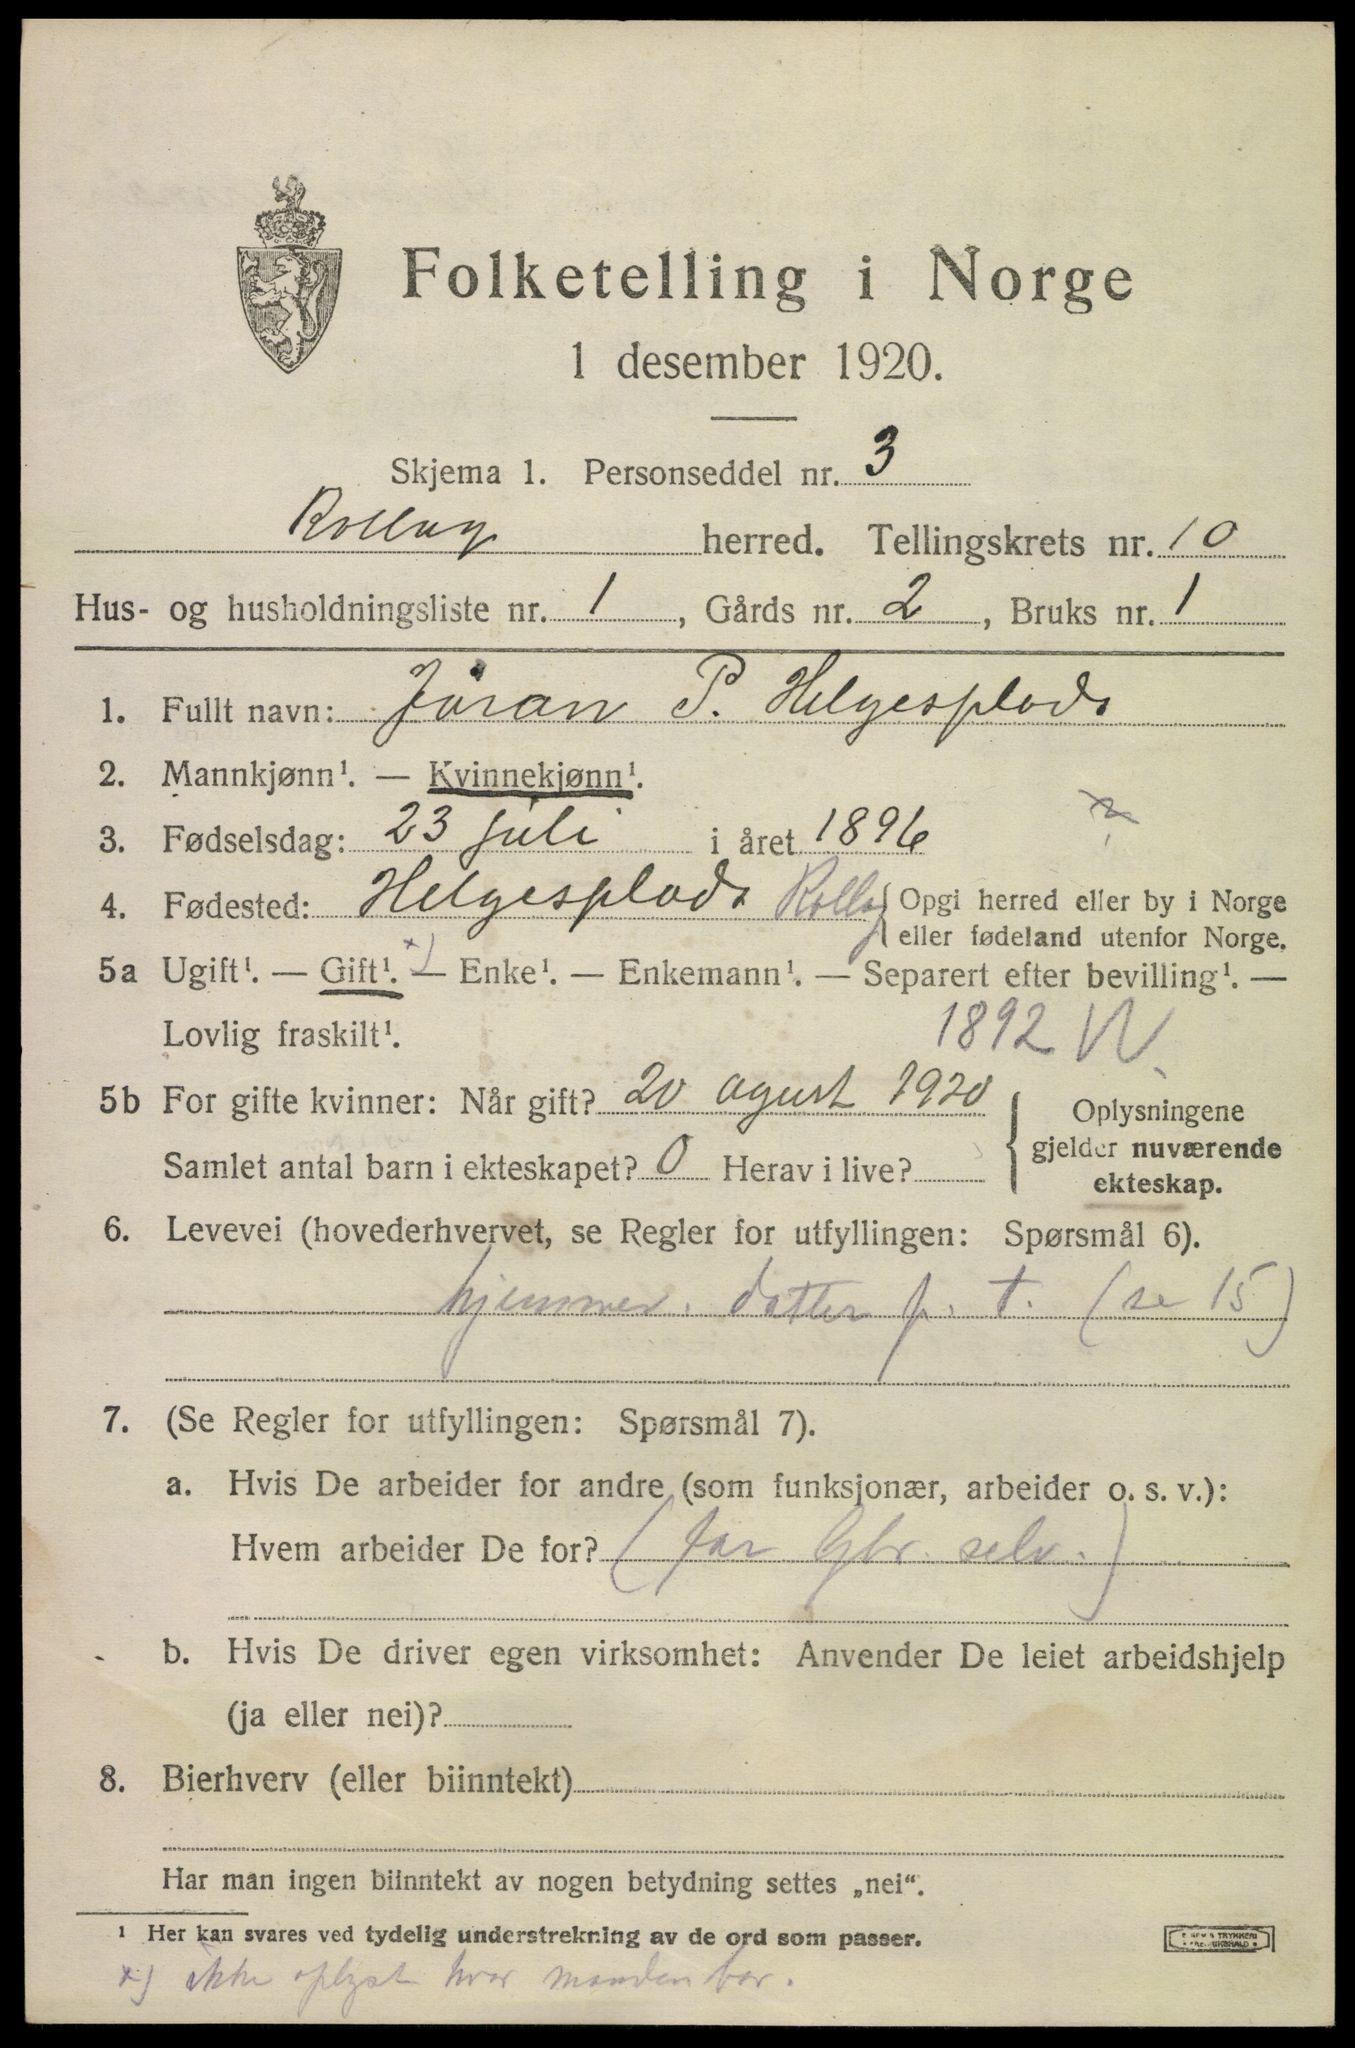 Folketelling i Norge
1 desember 1920.
Skjema 1. Personseddel nr. 3
Rollag herred. Tellingskrets nr. 10
Hus- og husholdningsliste nr. 1, Gårds nr. 2, Bruks nr. 1
1. Fullt navn: Jöran P. Helgesplads
2. Mannkjønn¹. — Kvinnekjønn¹.
3. Fødselsdag: 23 juli i året 1896
4. Fødested: Helgesplads Rollag { Opgi herred eller by i Norge
eller fødeland utenfor Norge.
5a Ugift¹. — Gift¹. x) — Enke¹. — Enkemann¹. — Separert efter bevilling¹. —
Lovlig fraskilt¹.
1892
5b For gifte kvinner: Når gift? 20 agust 1920
Samlet antal barn i ekteskapet? 0 Herav i live?
{ Oplysningene
gjelder nuværende
ekteskap.
6. Levevei (hovederhvervet, se Regler for utfyllingen: Spørsmål 6).
hjemmev. datter p. t. (se 15)
7. (Se Regler for utfyllingen: Spørsmål 7).
a. Hvis De arbeider for andre (som funksjonær, arbeider o. s. v.):
Hvem arbeider De for? (far Gbr. selv.)
b. Hvis De driver egen virksomhet: Anvender De leiet arbeidshjelp
(ja eller nei)?
8. Bierhverv (eller biinntekt)
Har man ingen biinntekt av nogen betydning settes „nei“.
¹ Her kan svares ved tydelig understrekning av de ord som passer.
x) ikke oplyst hvor manden bor.